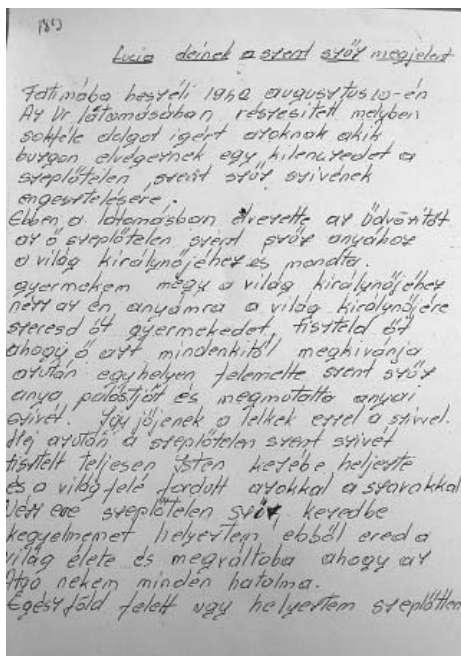 Lucia deinek a szent szűz megjelent
Fatimába beszéli 1942 augusztus 10-én
Az Úr látomásában részesített, melyben
sokféle dolgot igért azoknak akik
buzgon elvégeznek egy kilencedet a
szeplőtelen szent szűz szivének
engesztelésére.
Ebben a látomásban elvezette az Üdvözitőt
az ő szeplőtelen szent szűz anyához
a világ királynőjéhez és mondta.
gyermekem megy a világ királynőjéhez
nézz az én anyámra a világ királynőjére
szeresd őt gyermekedet, tiszteld őt
ahogy ő azt mindenkitől megkivánja
azután egyhelyen felemelte szent szűz
anya palástját és megmutatta anyai
szivét. Igy jöjenek a lelkek ezzel a szivvel.
azután a szeplőtelen szent szivét
tisztelt teljesen Isten kezébe helyezte
és a világ felé fordult azokkal a szavakkal
szeplőtelen szűz kezedbe
kegyelmemet helyeztem ebből ered a
világ élete és megváltoba ahogy az
Atya nekem minden hatalma.
Egész föld felett ugy helyeztem szeplőtlen